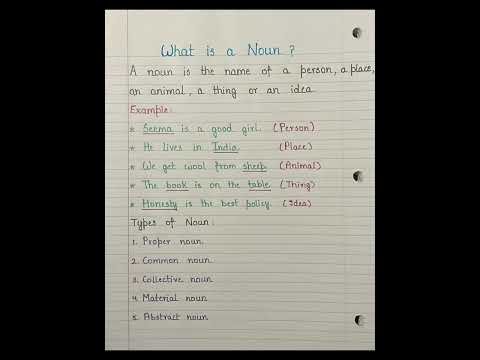 What is a Noun?
A noun is the name of a person, a place,
an animal, a thing or an idea
Example:
* Seema is a good girl. (Person)
* He lives in India. (Place)
* We get wool from sheep. (Animal)
* The book is on the table. (Thing)
* Honesty is the best policy. (Idea)
Types of Noun:
1. Proper noun.
2. Common noun.
3. Collective noun
4. Material noun.
5. Abstract noun.